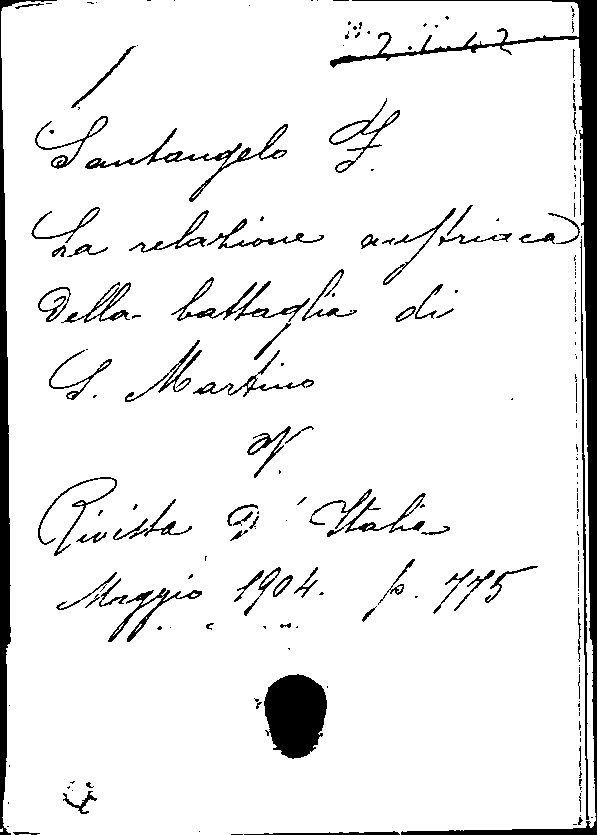 Santangelo F.
La relazione austriaca
della battaglia di
S. Martino
V.
Rivista d'Italia
Maggio 1904. p. 775